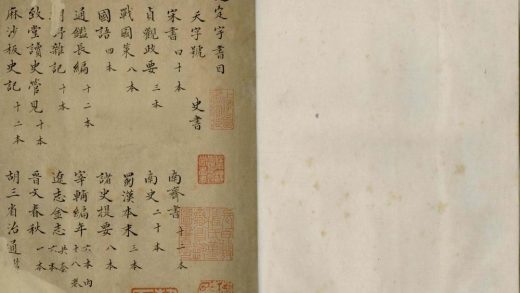 定字書目
天字號　史書
宋書 四十本　南齊書 十二本
貞觀政要 三本　南史 二十本
戰國策 八本　蜀漢本末 三本
國語 四本　諸史提要 八本
通鑑長編 十二本　宰輔編年 六本內
雜記 十本　遼志金志 六本
致堂讀史管見 十本　晉文春秋 一本
麻沙板史記 十二本　胡三省治通